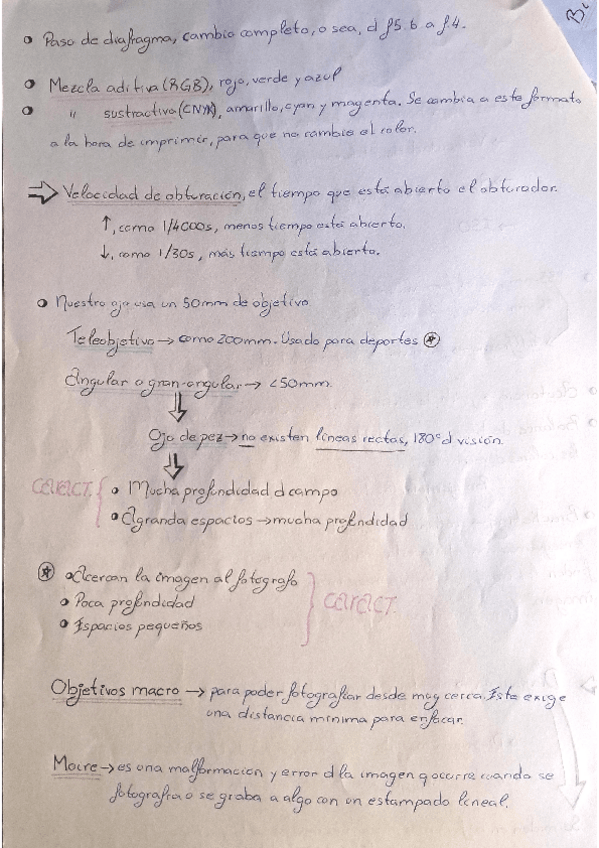 Paso de diafragma, cambio completo, o sea, d f5.6 a f4.
Mezcla aditiva (RGB), rojo, verde y azul
" sustractiva (CNYK), amarillo, cyan y magenta. Se cambia a este formato
a la hora de imprimir, para que no cambie el color.
⇒ Velocidad de obturación, el tiempo que está abierto el obturador.
↑, como 1/4000s, menos tiempo está abierto.
↓, como 1/30s, más tiempo está abierto.
Nuestro ojo usa un 50mm de objetivo
Teleobjetivo → como 200mm. Usado para deportes
Angular o gran-angular → <50mm.
Ojo de pez → no existen líneas rectas, 180° d visión.
Caract.
Mucha profundidad d campo
Agranda espacios → mucha profundidad
Acercan la imagen al fotografo
Poca profundidad
Espacios pequeños
Caract.
Objetivos macro → para poder fotografiar desde muy cerca. Este exige
una distancia mínima para enfocar.
Moire → es una malformación y error d la imagen q ocurre cuando se
fotografía o se graba a algo con un estampado lineal.